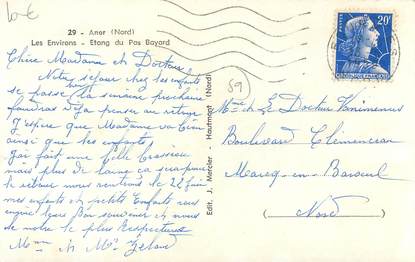 10€
29 - Anor (Nord)
Les Environs - Etang du Pas Bayard
20F
REPUBLIQUE FRANÇAISE
Chère Madame et Docteur
Notre séjour chez les enfants
se passe bien la semaine prochaine
faudra déjà penser au retour
J'espère que Madame va bien
ainsi que les enfants
j'ai fait une belle
mais plus de laine ça
le retour nous rentrons le 22 juin
mes enfants et petits Enfants se
leurs Bon souvenir et nous
de notre le plus Respectueux
Mme et Mr
59
Edit. J. Mercier - Hautmont (Nord)
Mme & Le Docteur Vanimenus
Boulevard Clémenceau
Marcq-en-Baroeul
Nord